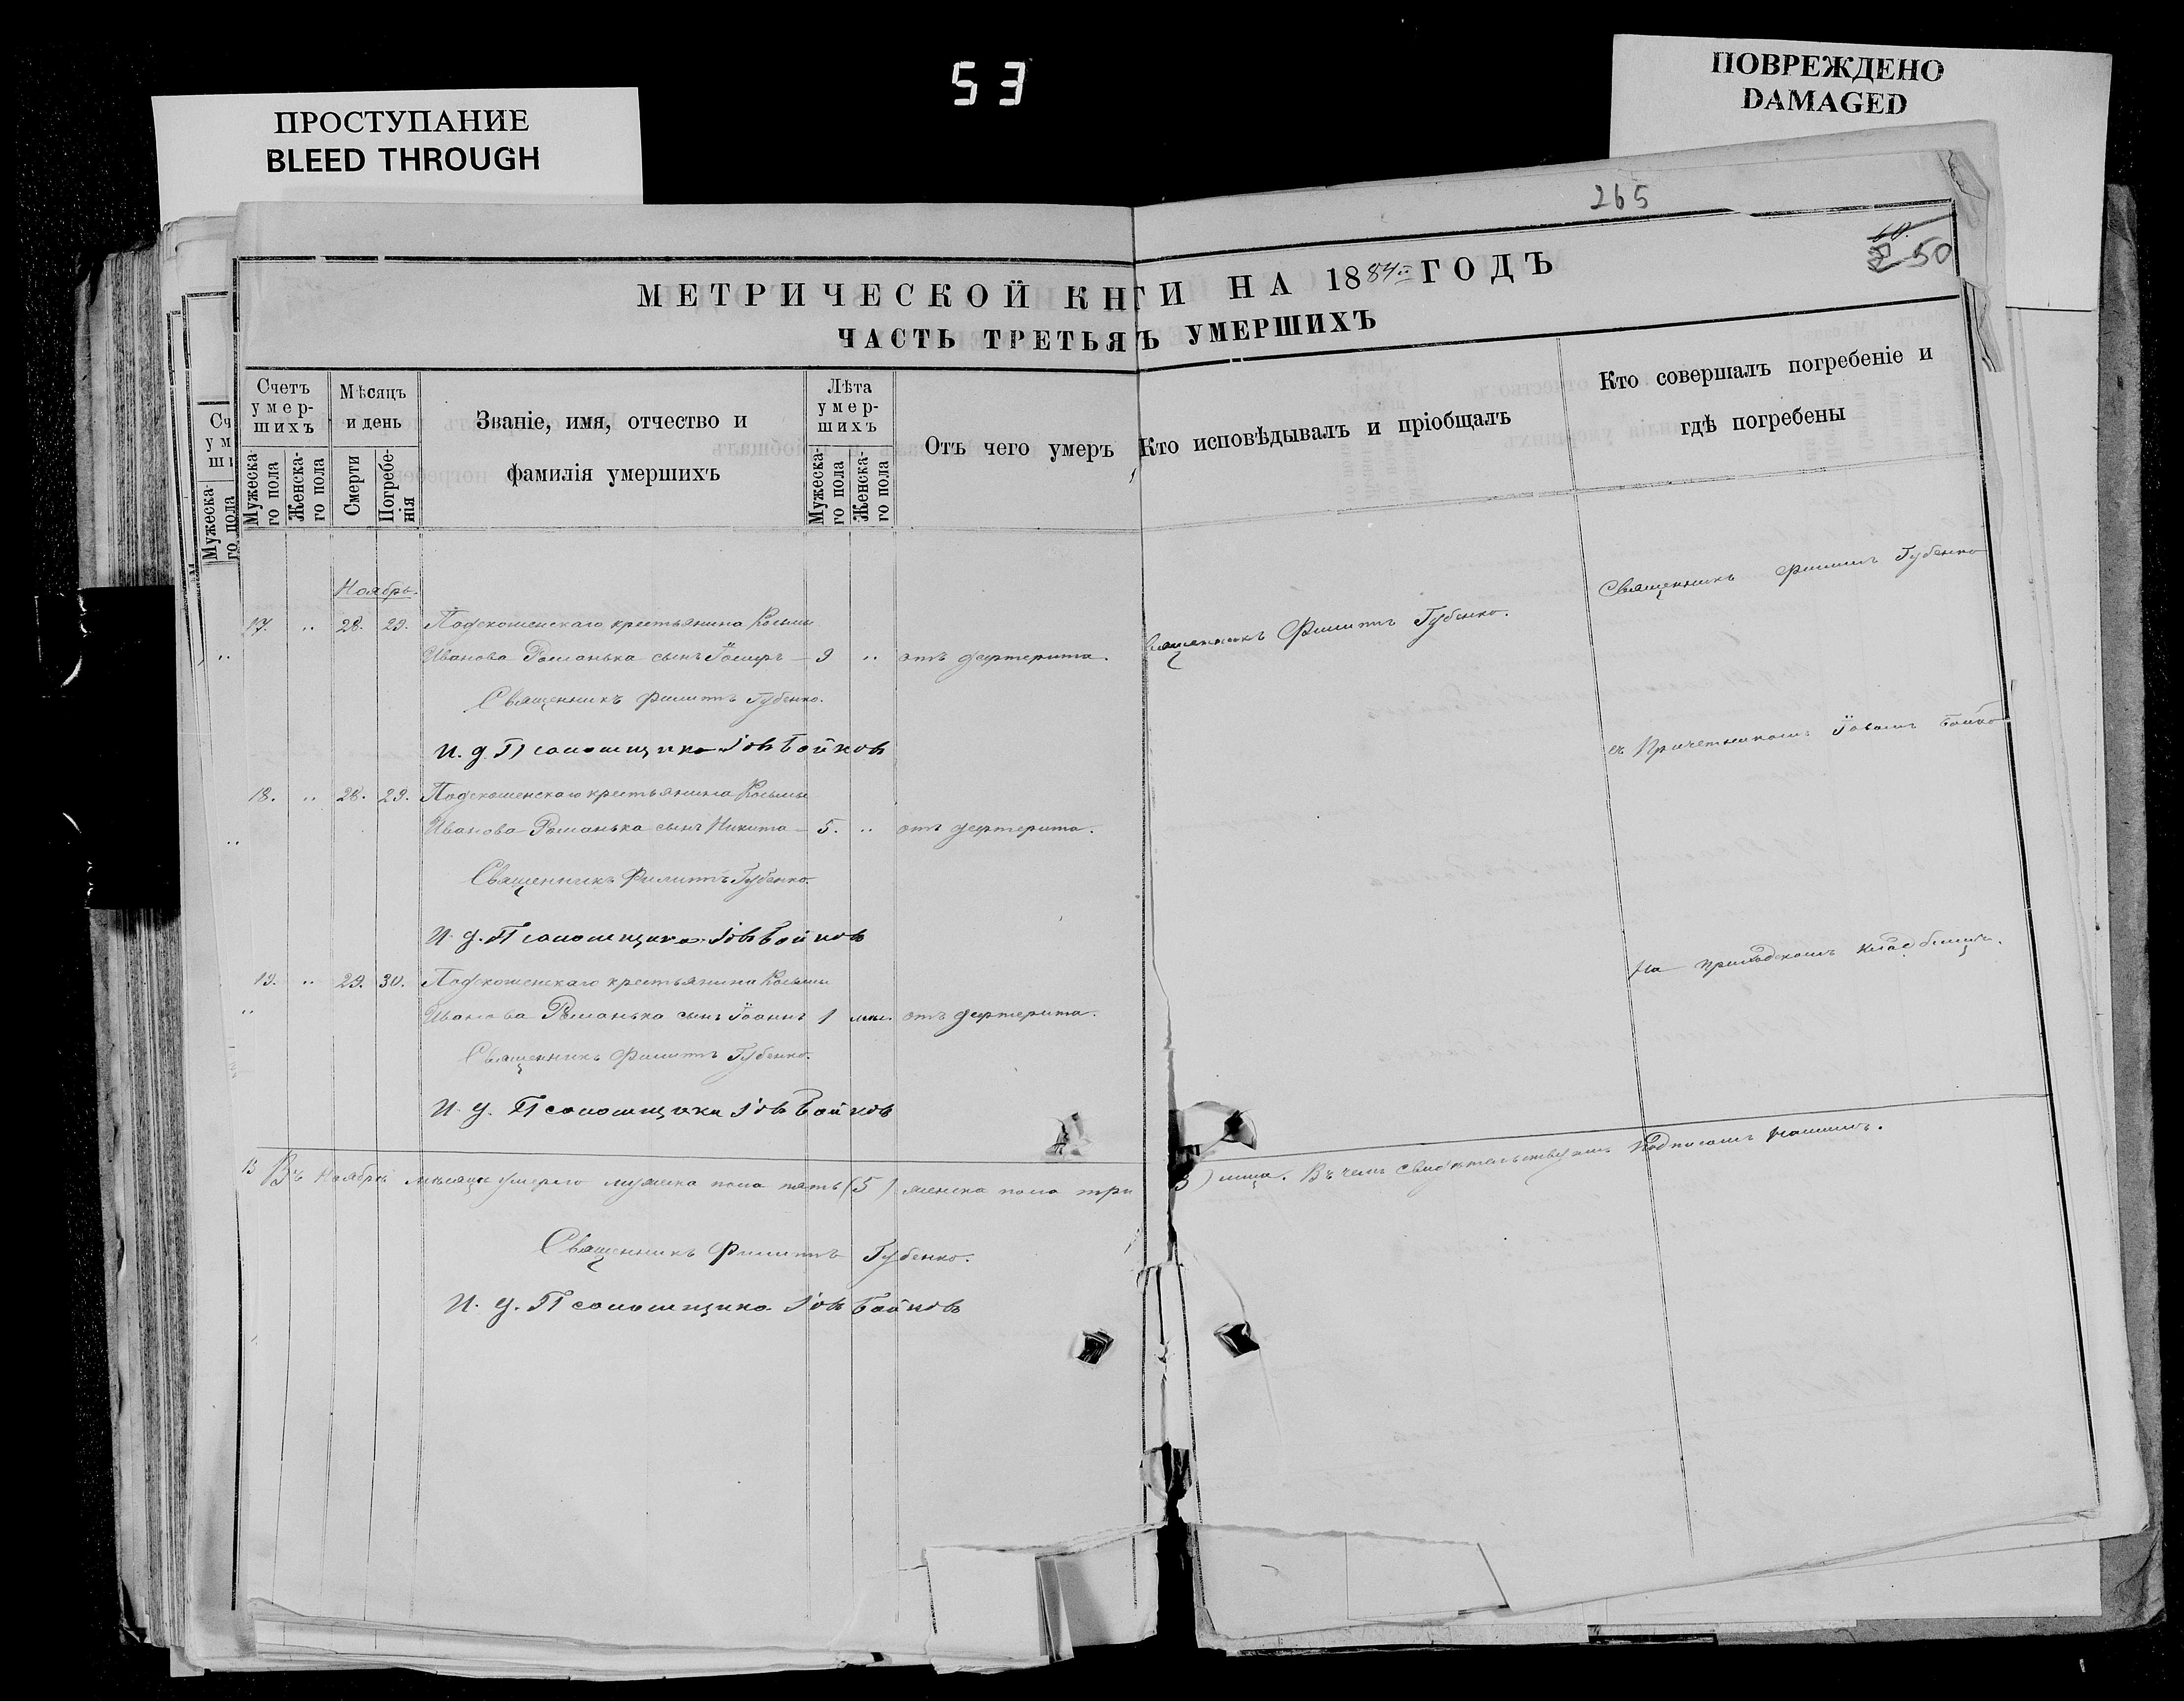 53
ПРОСТУПАНИЕ
BLEED THROUGH
ПОВРЕЖДЕНО
DAMAGED
265
50
МЕТРИЧЕСКОЙ КНГИ НА 1884й ГОДЪ
ЧАСТЬ ТРЕТЬЯЪ УМЕРШИХЪ
Счетъ умер-шихъ
Мужеска-го пола
Женска-го пола
Мѣсяцъ и день
Смерти
Погребе-нія
Званіе, имя, отчество и
фамилія умершихъ
Лѣта умер-шихъ
Мужеска-го пола
Женска-го пола
Отъ чего умеръ
Кто исповѣдывалъ и пріобщалъ
Кто совершалъ погребеніе и
гдѣ погребены
Ноябрь.
17. " 28. 29. крестьянина Косьмы
Иванова Романька сынъ — 9 " отъ дифтерита.
Священникъ Филиппъ Губенко.
Священникъ Филиппъ Губенко
Священникъ Филиппъ Губенко.
И. д. Псаломщика Іовъ Бойковъ
съ Причетникомъ Іовомъ Бойко
18. " 28. 29. крестьянина Косьмы
Иванова Романька сынъ Никита — 5. " отъ дифтерита.
Священникъ Филиппъ Губенко.
И. д. Псаломщика Іовъ Бойковъ
На приходскомъ кладбищѣ.
19. " 29. 30. крестьянина Косьмы
Иванова Романька сынъ Іоаннъ 1 отъ дифтерита.
Священникъ Филиппъ Губенко.
И. д. Псаломщика Іовъ Бойковъ
Въ Ноябрѣ мѣсяцѣ умерло мужеска пола пять (5) женска пола три 3) лица. Въ чемъ свидѣтельствуемъ подписомъ нашимъ.
Священникъ Филиппъ Губенко.
И. д. Псаломщика Іовъ Бойковъ